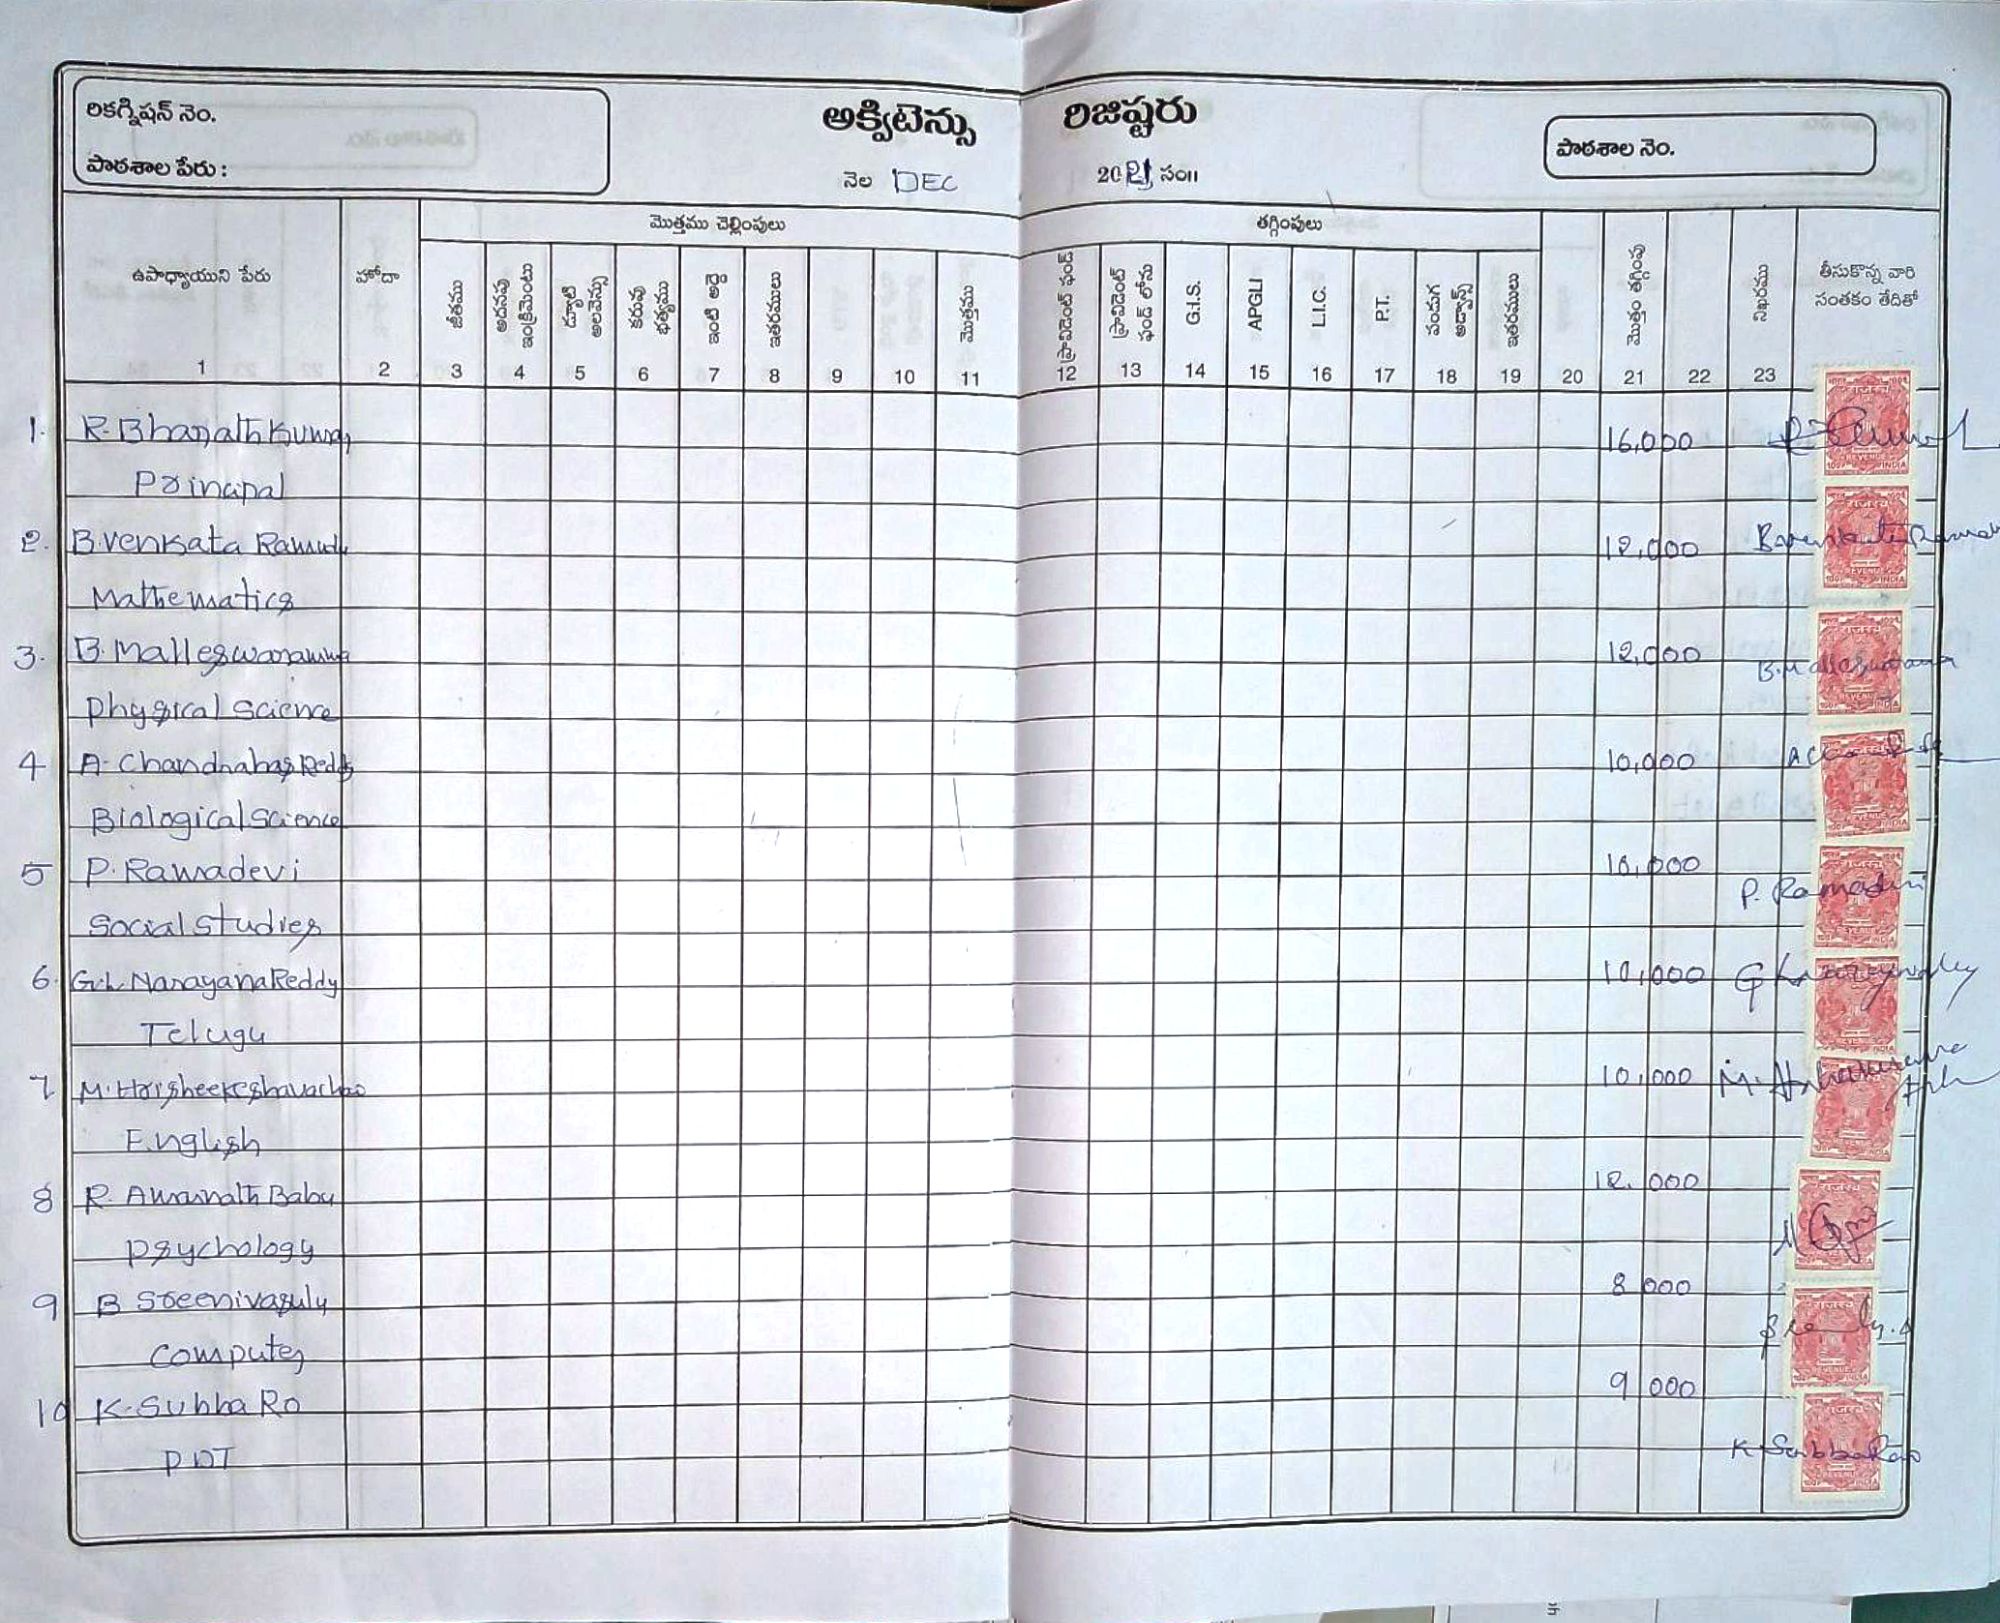 రికగ్నిషన్ నెం.
పాఠశాల పేరు :
అక్విటెన్సు రిజిష్టరు
నెల DEC 2021 సం॥
పాఠశాల నెం.
ఉపాధ్యాయుని పేరు
హోదా
మొత్తము చెల్లింపులు
తగ్గింపులు
జీతము
అదనపు ఇంక్రిమెంటు
డ్యూటి అలవెన్సు
కరువు భత్యము
ఇంటి అద్దె
ఇతరములు
మొత్తము
ప్రావిడెంట్ ఫండ్
ప్రావిడెంట్ ఫండ్ లోను
G.I.S.
APGLI
L.I.C.
P.T.
పండుగ అడ్వాన్స్
ఇతరములు
మొత్తం తగ్గింపు
నిఖరము
తీసుకొన్న వారి సంతకం తేదితో
1 2 3 4 5 6 7 8 9 10 11 12 13 14 15 16 17 18 19 20 21 22 23
1. R. Bharath Kumar 16,000
Principal
2. B. Venkata Ramudu 12,000
Mathematics
3. B. Malleswaramma 12,000 B. Malleswaramma
Physical Science
4 A. Chandhahas Reddy 10,000
Biological Science
5 P. Ramadevi 10,000 P. Ramadevi
Social Studies
6. G.L. Narayana Reddy 10,000
Telugu
7 M. 10,000
English
8 R. Amarnath Babu 12,000
Psychology
9 B Sreenivasulu 8 000
Computer
10 K. Subba Ro 9 000 K Subba Rao